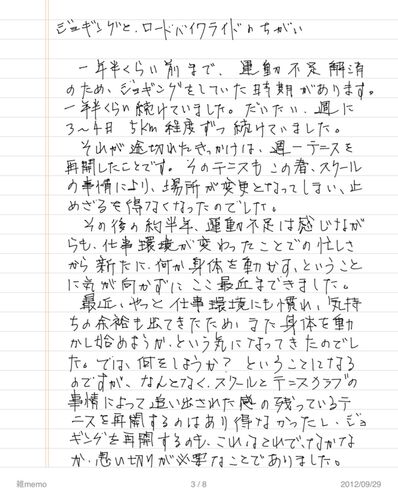 ジョギングと、ロードバイクライドのちがい
一年半くらい前まで、運動不足解消
のため、ジョギングをしていた時期があります。
一年半くらい続けていました。だいたい、週に
3〜4日 5km程度ずつ続けていました。
それが途切れたきっかけは、週一テニスを
再開したことです。そのテニスもこの春、スクール
の事情により、場所が変更となってしまい、止
めざるを得なくなったのでした。
その後の約半年、運動不足は感じなが
らも、仕事環境が変わったことでの忙しさ
から新たに、何か身体を動かす、ということ
に気が向かずに ここ最近まできました。
最近、やっと仕事環境にも慣れ、気持
ちの余裕も出てきたため、また身体を動
かし始めようか、という気になってきたのでし
た。では、何をしようか？ ということになる
のですが、なんとなく、スクールとテニスクラブの
事情によって追い出された感の残っているテ
ニスを再開するのはあり得なかったし、ジョ
ギングを再開するのも、これはこれで、なかなか
か、思い切りが必要なことでありました。
雑memo
3 / 8
2012/09/29